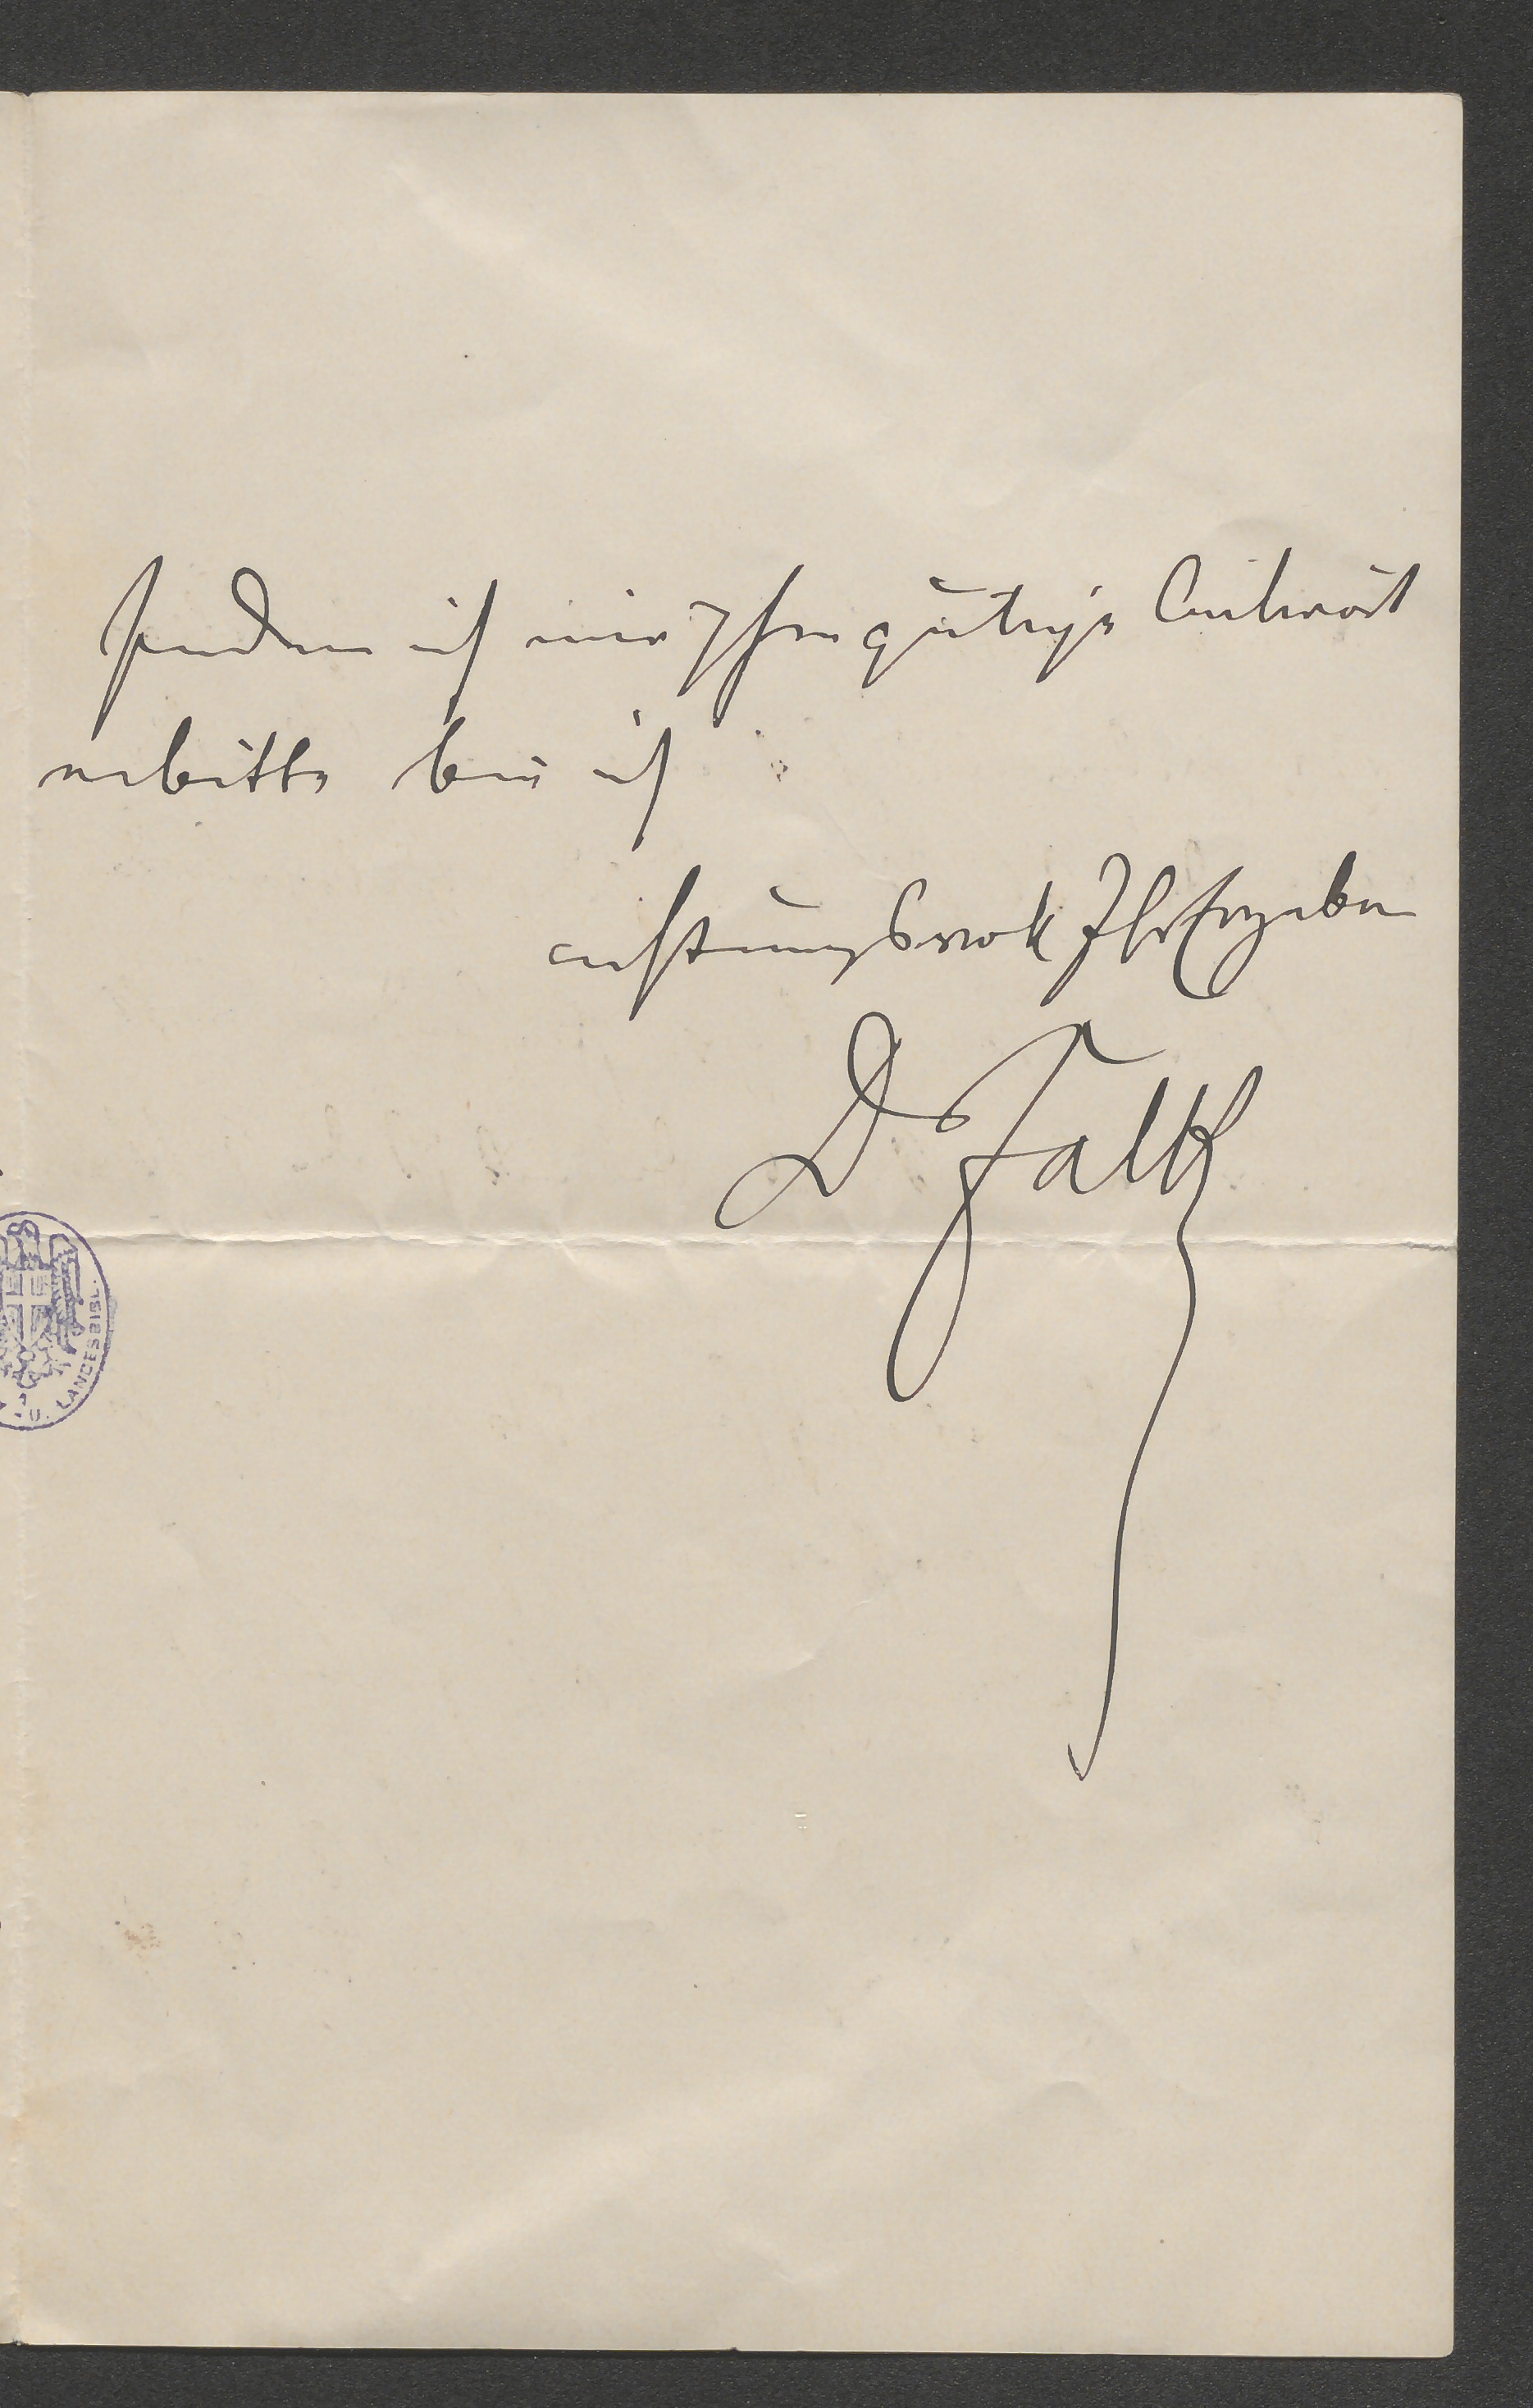 Indem ich mir Ihre gütige Antwort
erbitte bin ich
achtungsvoll Ihr Ergebener
Dr Falk
U. LANDESBIBL.